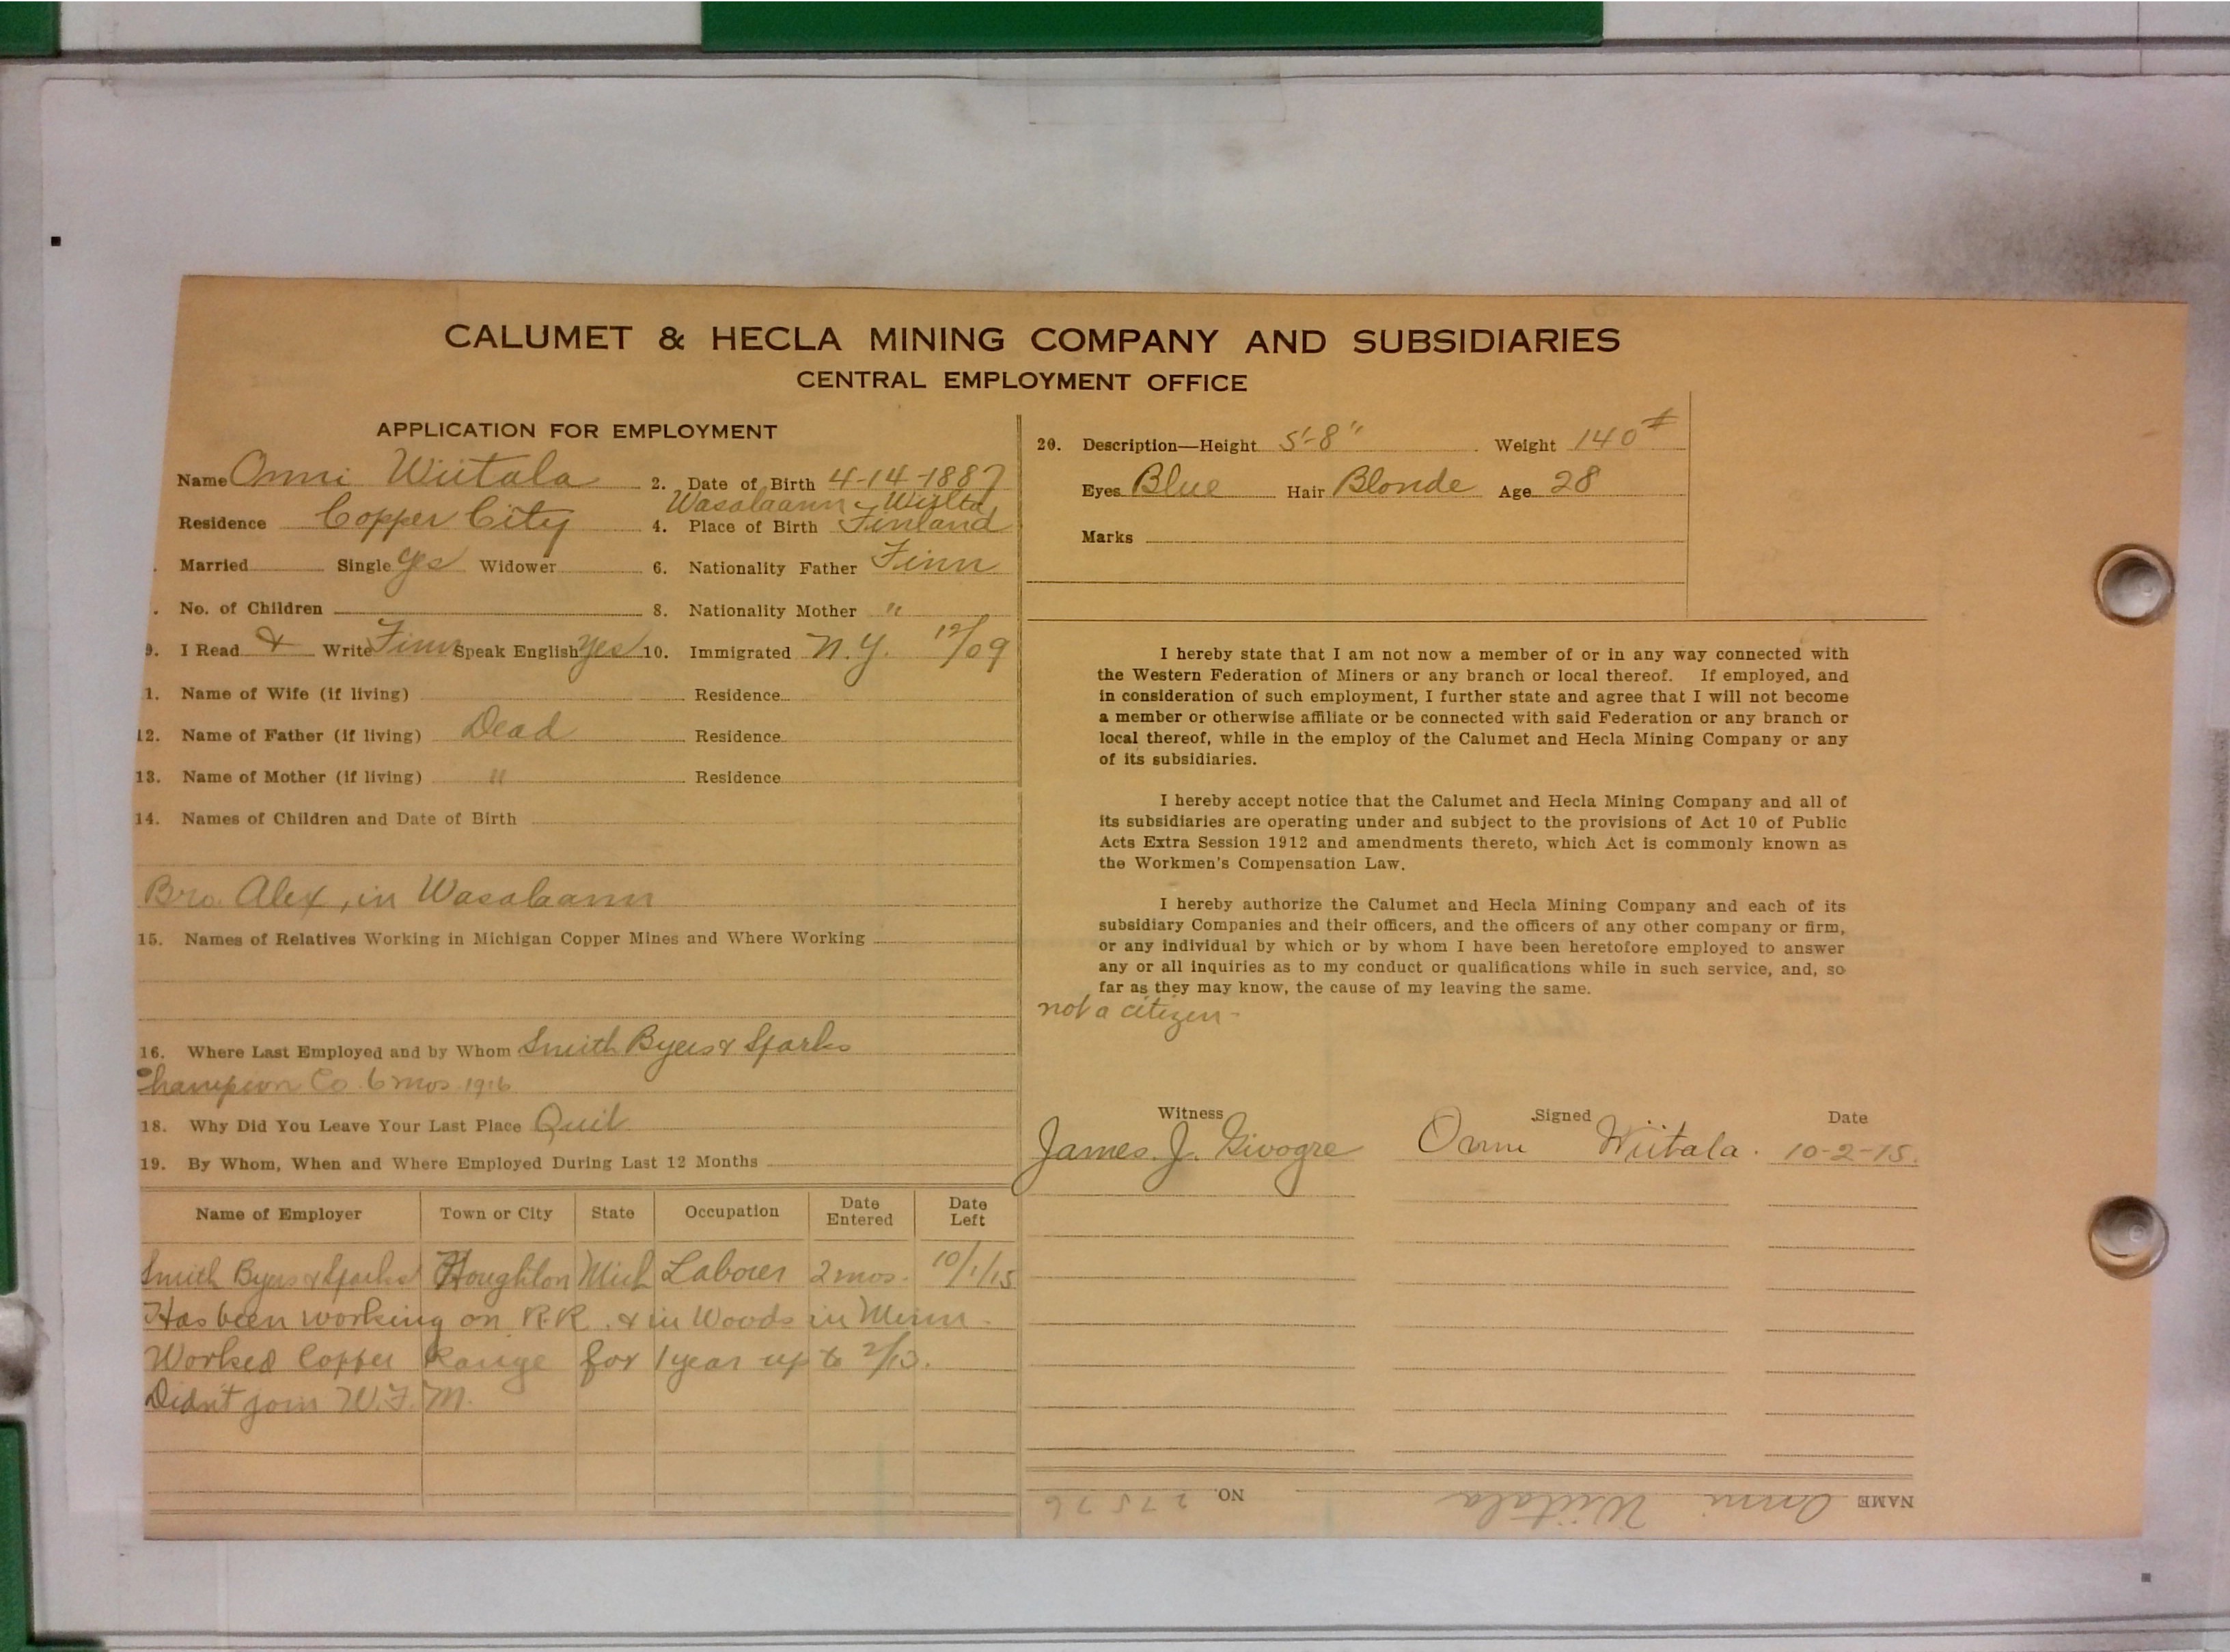 CALUMET & HECLA MINING COMPANY AND SUBSIDIARIES
CENTRAL EMPLOYMENT OFFICE
APPLICATION FOR EMPLOYMENT
Name Onni Wiitala 2. Date of Birth 4-14-1887
Wasalaann
Residence Copper City 4. Place of Birth Finland
Married Single Yes Widower 6. Nationality Father Finn
No. of Children 8. Nationality Mother "
9. I Read & Write Finn Speak English Yes 10. Immigrated N.Y. 12/09
1. Name of Wife (if living) Residence
12. Name of Father (if living) Dead Residence
13. Name of Mother (if living) " Residence
14. Names of Children and Date of Birth
Bro. Alex, in Wasalaann
15. Names of Relatives Working in Michigan Copper Mines and Where Working
16. Where Last Employed and by Whom Smith Byers & Sparks
Champion Co. 6 mos 1916
18. Why Did You Leave Your Last Place Quit
19. By Whom, When and Where Employed During Last 12 Months
Name of Employer Town or City State Occupation Date Entered Date Left
Smith Byers & Sparks Houghton Mich Laborer 2 mos. 10/1/15
Has been working on R.R. & in Woods in Minn.
Worked Copper Range for 1 year up to 2/13.
Didn't join W.F.M.
20. Description—Height 5'-8" Weight 140#
Eyes Blue Hair Blonde Age 28
Marks
I hereby state that I am not now a member of or in any way connected with
the Western Federation of Miners or any branch or local thereof. If employed, and
in consideration of such employment, I further state and agree that I will not become
a member or otherwise affiliate or be connected with said Federation or any branch or
local thereof, while in the employ of the Calumet and Hecla Mining Company or any
of its subsidiaries.
I hereby accept notice that the Calumet and Hecla Mining Company and all of
its subsidiaries are operating under and subject to the provisions of Act 10 of Public
Acts Extra Session 1912 and amendments thereto, which Act is commonly known as
the Workmen's Compensation Law.
I hereby authorize the Calumet and Hecla Mining Company and each of its
subsidiary Companies and their officers, and the officers of any other company or firm,
or any individual by which or by whom I have been heretofore employed to answer
any or all inquiries as to my conduct or qualifications while in such service, and, so
far as they may know, the cause of my leaving the same.
not a citizen -
Witness Signed Date
James. J. Givogre Onni Wiitala. 10-2-15.
NAME Onni Wiitala NO. 27576